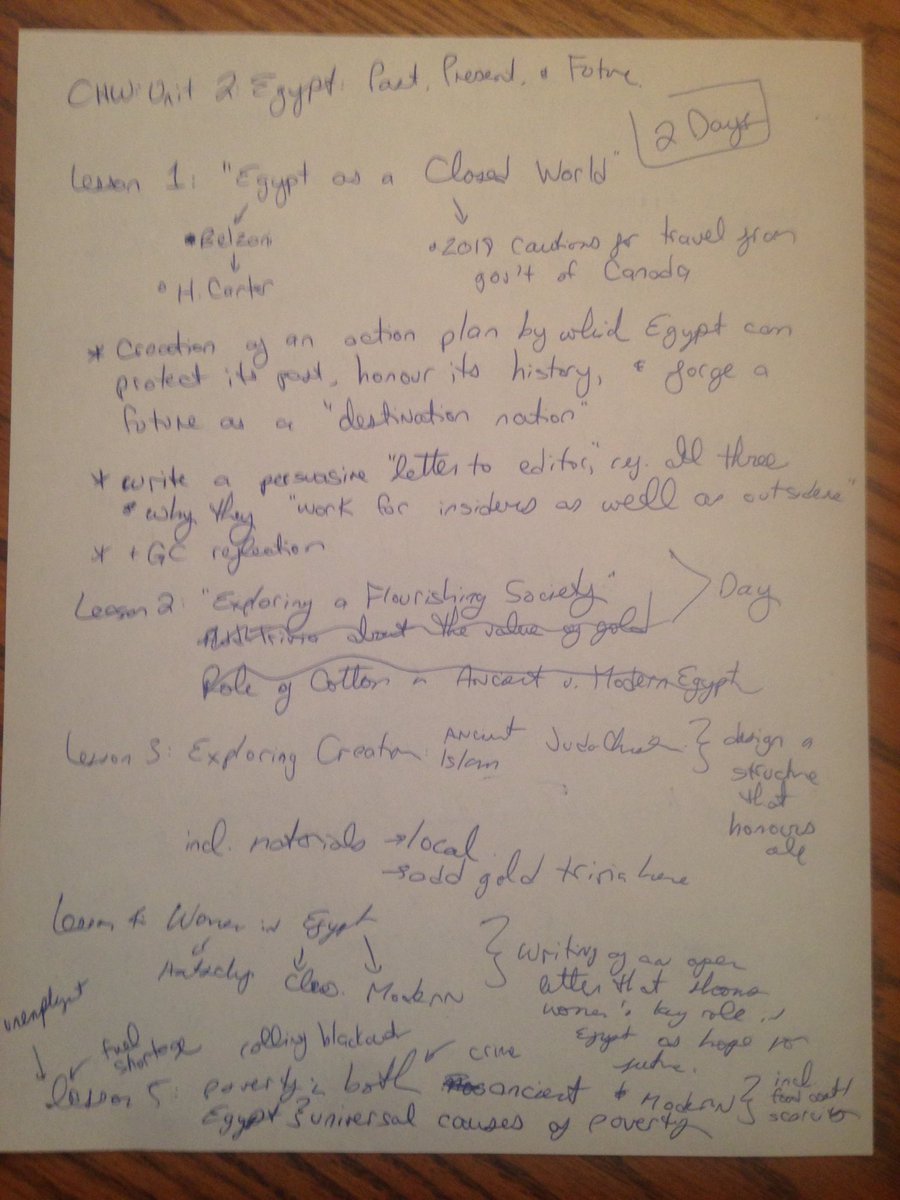 CHW: Unit 2: Egypt: Past, Present, & Future
2 Days
Lesson 1: "Egypt as a Closed World"
• Belzoni
• H. Carter
• 2019 Cautions for travel from
gov't of Canada
* Creation of an action plan by which Egypt can
protect its past, honour its history, & forge a
future as a "destination nation"
* write a persuasive "letter to editor," re: all three
• why they "work for insiders as well as outsiders"
* + GC reflection
Lesson 2: "Exploring a Flourishing Society"
Day
Trivia about the value of gold
Role of Cotton in Ancient v. Modern Egypt
Lesson 3: Exploring Creation: Ancient
Islam
Judeo
design a
structure
that
honours
all
incl. materials → local
→ add gold trivia here
Lesson 4: Women in Egypt
Class. Modern
Writing of an open
letter that shows
women's key role in
Egypt as hope for
future.
unemploy't
fuel
shortage
rolling blackouts
crime
Lesson 5: poverty in both ancient & Modern
Egypt & universal causes of poverty
incl
food cost/
scarcity